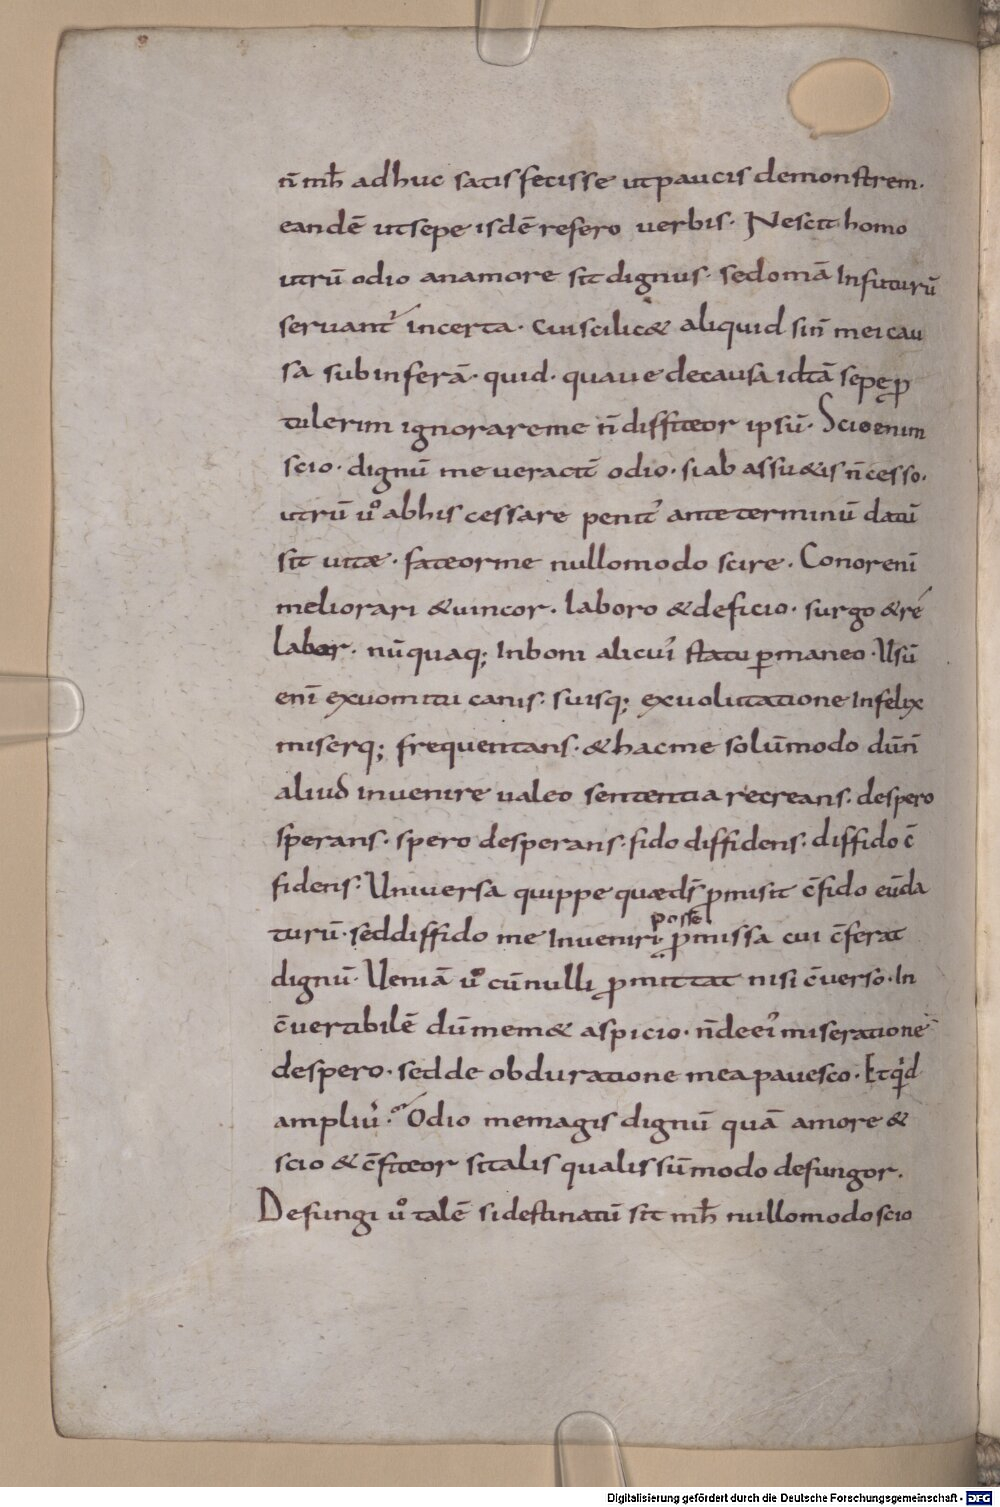 n̄ mh̄ adhuc satisfecisse ut paucis demonstrem.
eandē ut sepe isdē resero verbis. Nescit homo
utrū odio an amore sit dignus. sed omā In futurū
servant᷒ incerta. Cui scilic& aliquid sin̄ mei cau
sa subinferā. quid. quave de causa id tā sepe ꝑ
tulerim ignorare me n̄ diffiteor ipsū. Scio enim
scio. dignū me veracit̄ odio. si ab assu&is n̄ cesso.
utrū ů ab his cessare penit᷒ ante terminū datū
sit vitæ. fateor me nullomodo scire. Conor enī
meliorari & vincor. laboro & deficio. surgo & re
labor. nūquaq; In boni alicui᷒ statu ꝑmaneo. Usū
enī ex vomitu canis. suisq; ex volutatione Infelix
miserq; frequentans. & hac me solūmodo dū n̄
aliud invenire valeo sententia recreans. despero
sperans. spero desperans. fido diffidens. diffido c̄
fidens. Universa quippe quæ ds̄ ꝓmisit c̄fido eū da
turū. sed diffido me Inveniri posse. ꝓmissa cui c̄ferat
dignū. Veniā ů cū nulli ꝓmittat nisi c̄verso. In
c̄vertibilē dū mem& aspicio. n̄ de ei᷒ miseratione
despero. sed de obduratione mea pavesco. Et qͥd
ampliu᷒. Odio me magis dignū quā amore &
scio & c̄fiteor si talis qualis sū modo defungor.
Defungi ů talē si destinatū sit mh̄ nullomodo scio
Digitalisierung gefördert durch die Deutsche Forschungsgemeinschaft - DFG